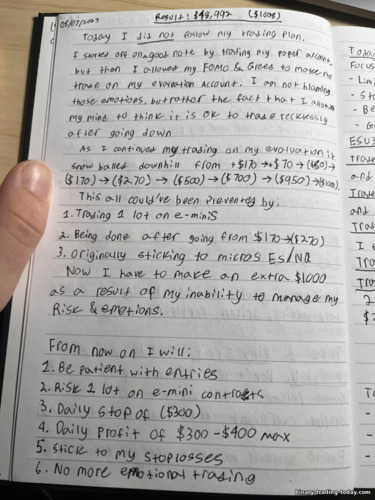 08/07/2023
Result: $48,992 ($1008)
Today I did not follow my trading plan.
I started off on a good note by trading my paper account,
but then I allowed my FOMO & Greed to make me
trade on my evaluation account. I am not blaming
those emotions, but rather the fact that I allowed
my mind to think it is ok to trade recklessly
after going down
As I continued my trading on my evaluation it
snow balled downhill from +$170 → +$70 → ($80) →
($170) → ($270) → ($500) → ($700) → ($950) → ($1008).
This all could've been prevented by:
1. Trading 1 lot on e-minis
2. Being done after going from $170 → ($270)
3. Originally sticking to micros ES/NQ
Now I have to make an extra $1000
as a result of my inability to manage my
Risk & emotions.
From now on I will:
1. Be patient with entries
2. Risk 1 lot on e-mini contracts
3. Daily stop of ($300)
4. Daily Profit of $300-$400 max
5. Stick to my stoplosses
6. No more emotional trading
Toda
Focus
- Lim
- St
- Be
- Gr
ESU3
Trade
and
Trade
and
Trad
I t
Tra
Tra
2
$2
To
binary-trading-today.com